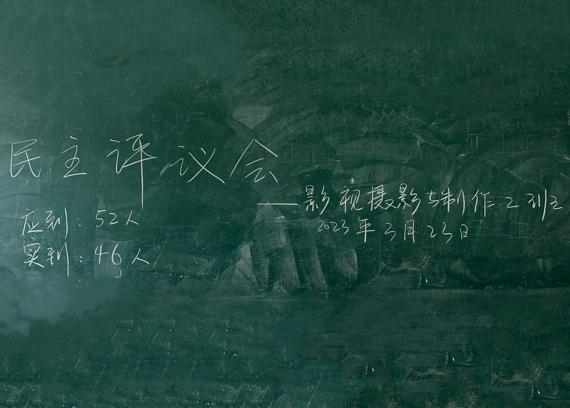 民主评议会
——影视摄影与制作2班
2023年3月23日
应到：52人
实到：46人